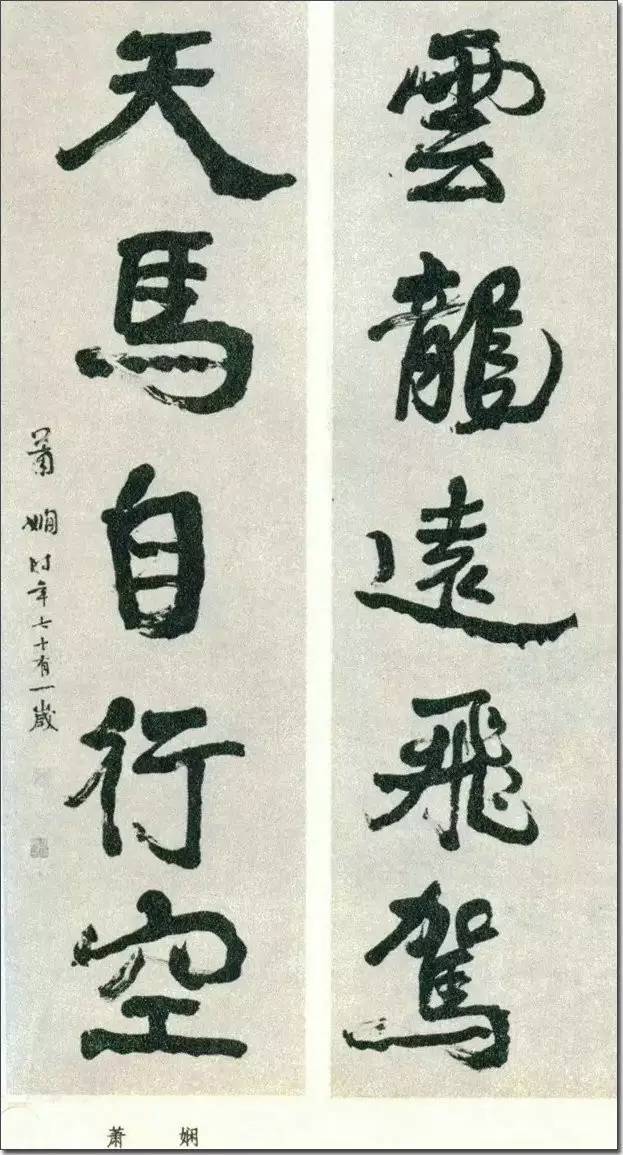 雲龍遠飛駕
天馬自行空
蕭嫻时年七十有一歲
萧 娴